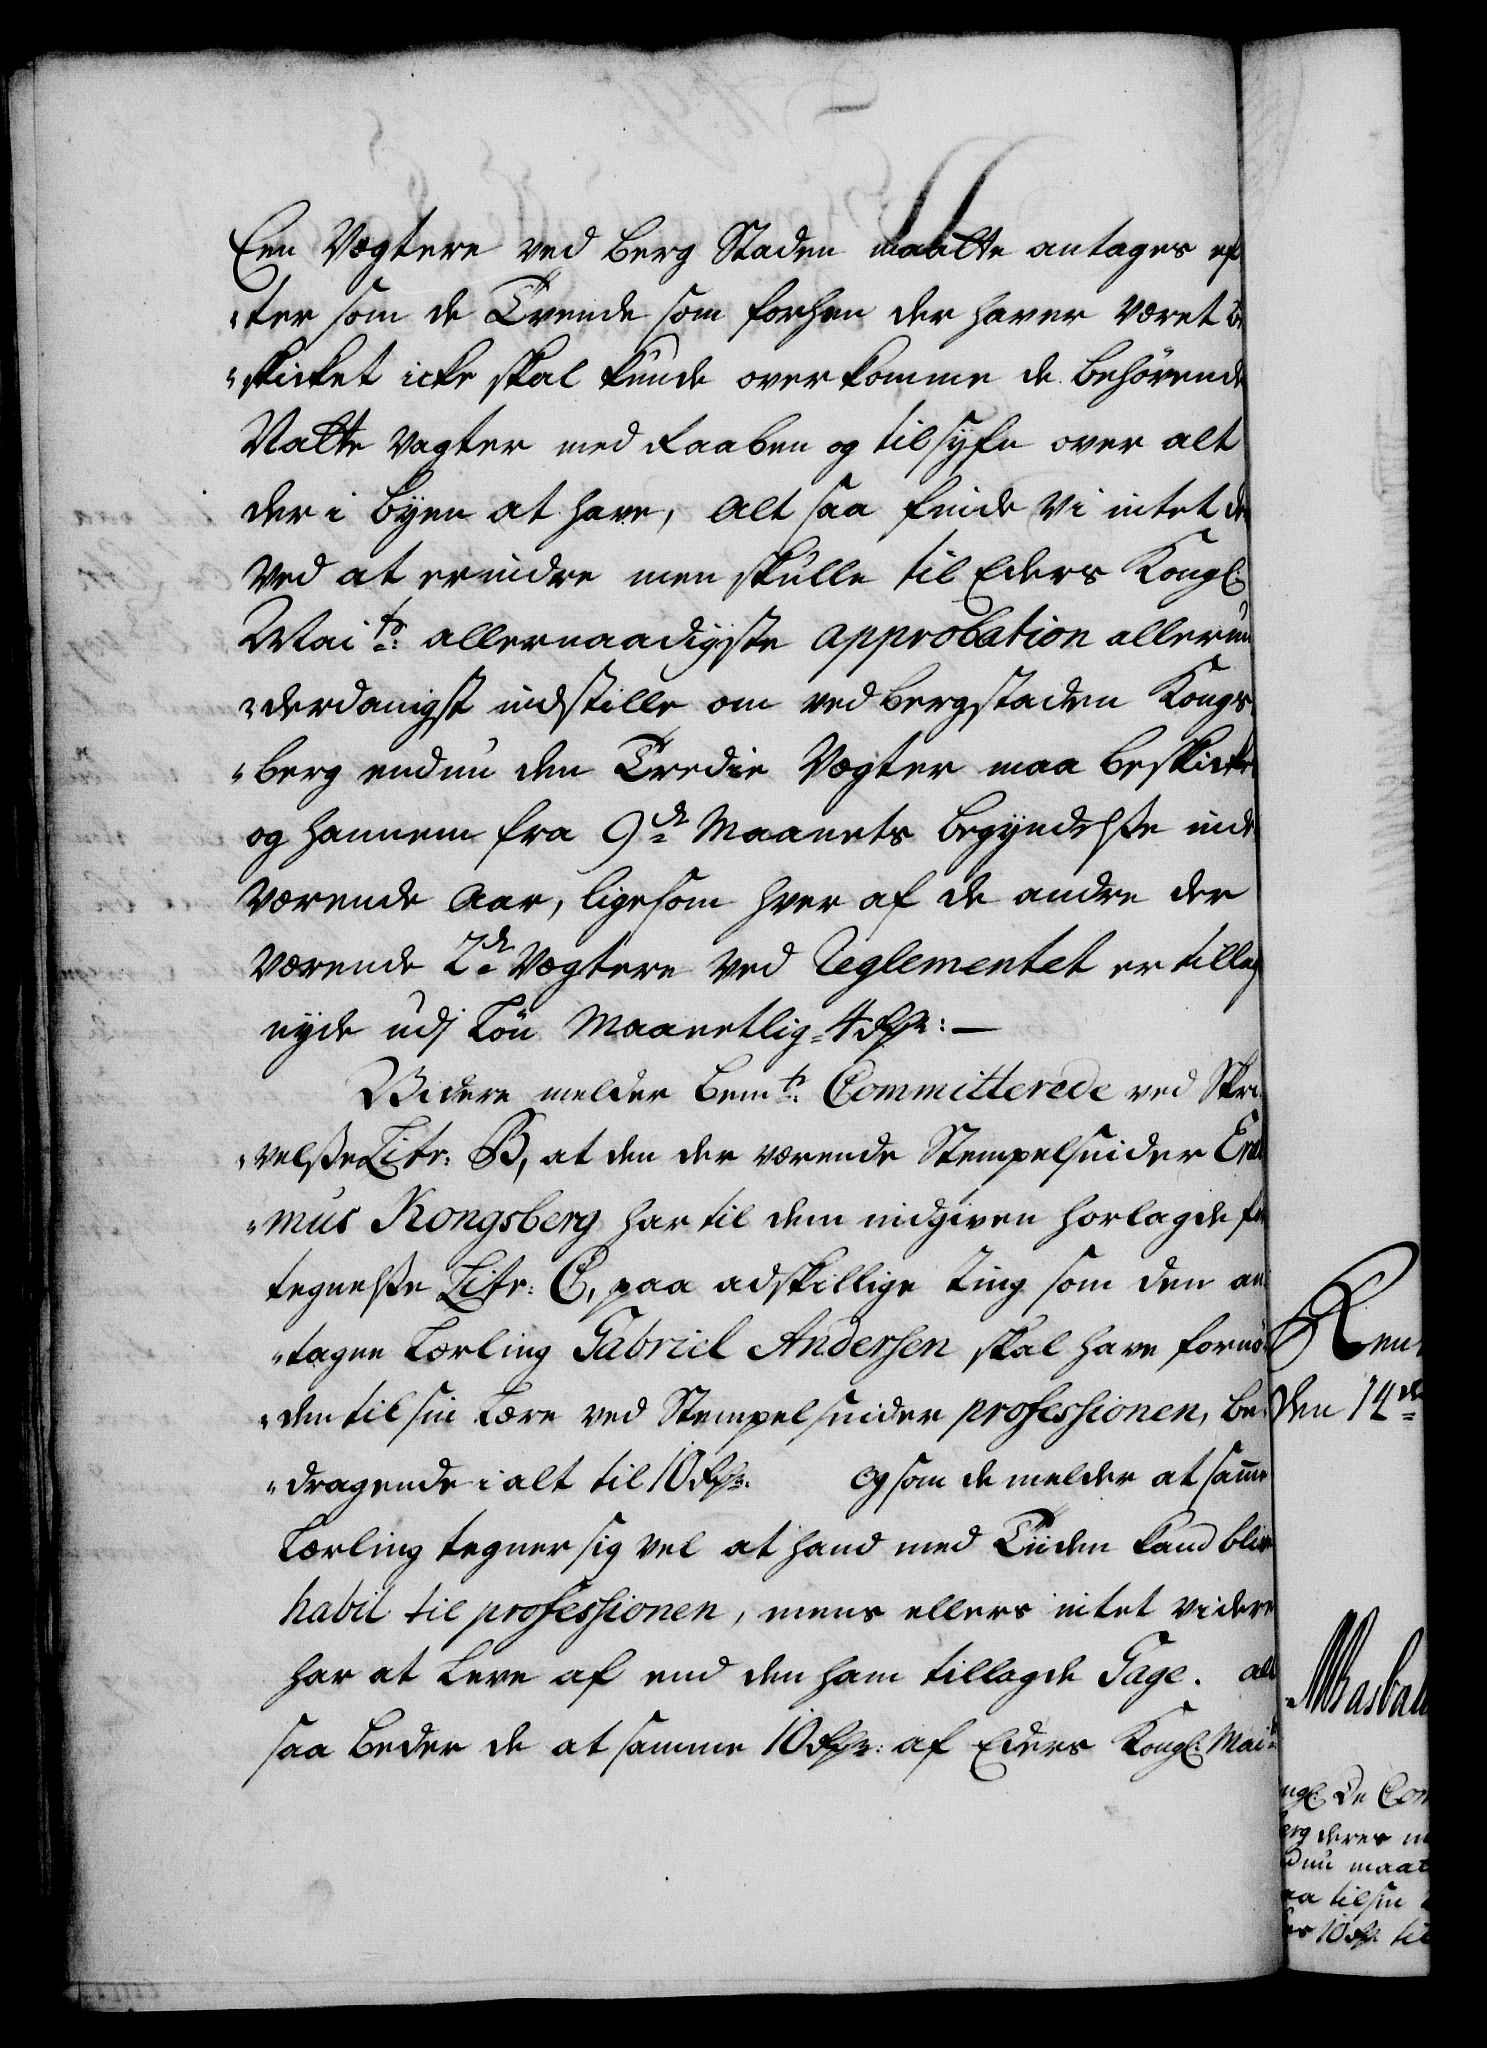 Een Vægtere ved Berg Staden maatte antages ef
"ter som de Tvende som forhen der haver været be
"skicket icke skal kunde overkomme de behörende
Natte Vagter med Raaben og tilsyfn over alt
der i Byen at have, alt saa finde Vi intet der
ved at erindre men skulle til Eders Kongl:
Maits: allernaadigste approbation allerun
"derdanigst indstille om ved Bergstaden Kongs
"berg endnu den Tredie Vægter maa beskickes
og hannem fra 9de Maanets Begyndelsse inde
værende Aar, ligesom hver af de andre der
værende 2de Vægtere ved Reglementet er tillagt
nyde udj Lön Maanetlig 4 Rdr: —
Videre melder bemte: Committerede ved Skri
"velsse Litr: B, at den der værende Stempelsnider Eras
"mus Kongsberg har til dem indgiven hoslagde for
tegnelsse Litr: C, paa adskillige Ting som den an
"tagne Lærling Gabriel Andersen skal have fornö
"den til sin Lære ved Stempelsnider professionen, be
"dragende i alt til 10 Rdr. Og som de melder at samme
Lærling tegner sig vel at hand med Tiiden kand blive
habil til professionen, mens ellers intet videre
har at leve af end den ham tillagde Gage. alt
saa beder de at samme 10 Rdr: af Eders Kongl: Maits
Ren
den 14de
ngl: De Com
erg deres
dnu maat
aa til sin
10 Rdr til